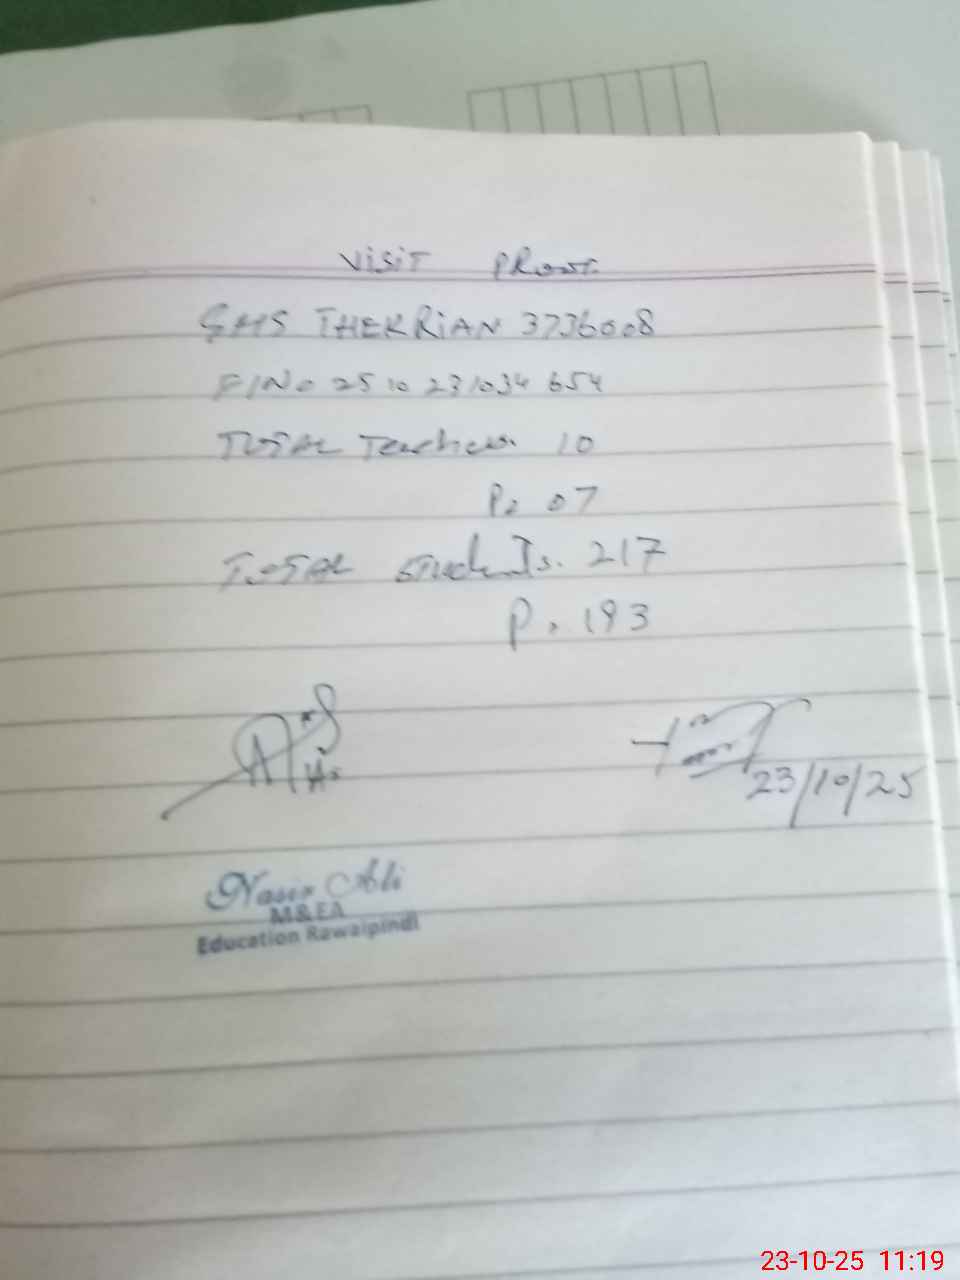 VISIT PROOF
GHS THEKRIAN 3736008
F/NO 2510231034654
TOTAL Teachers. 10
P. 07
TOTAL Students. 217
P. 193
23/10/25
Nasir Ali
M&EA
Education Rawalpindi
23-10-25 11:19